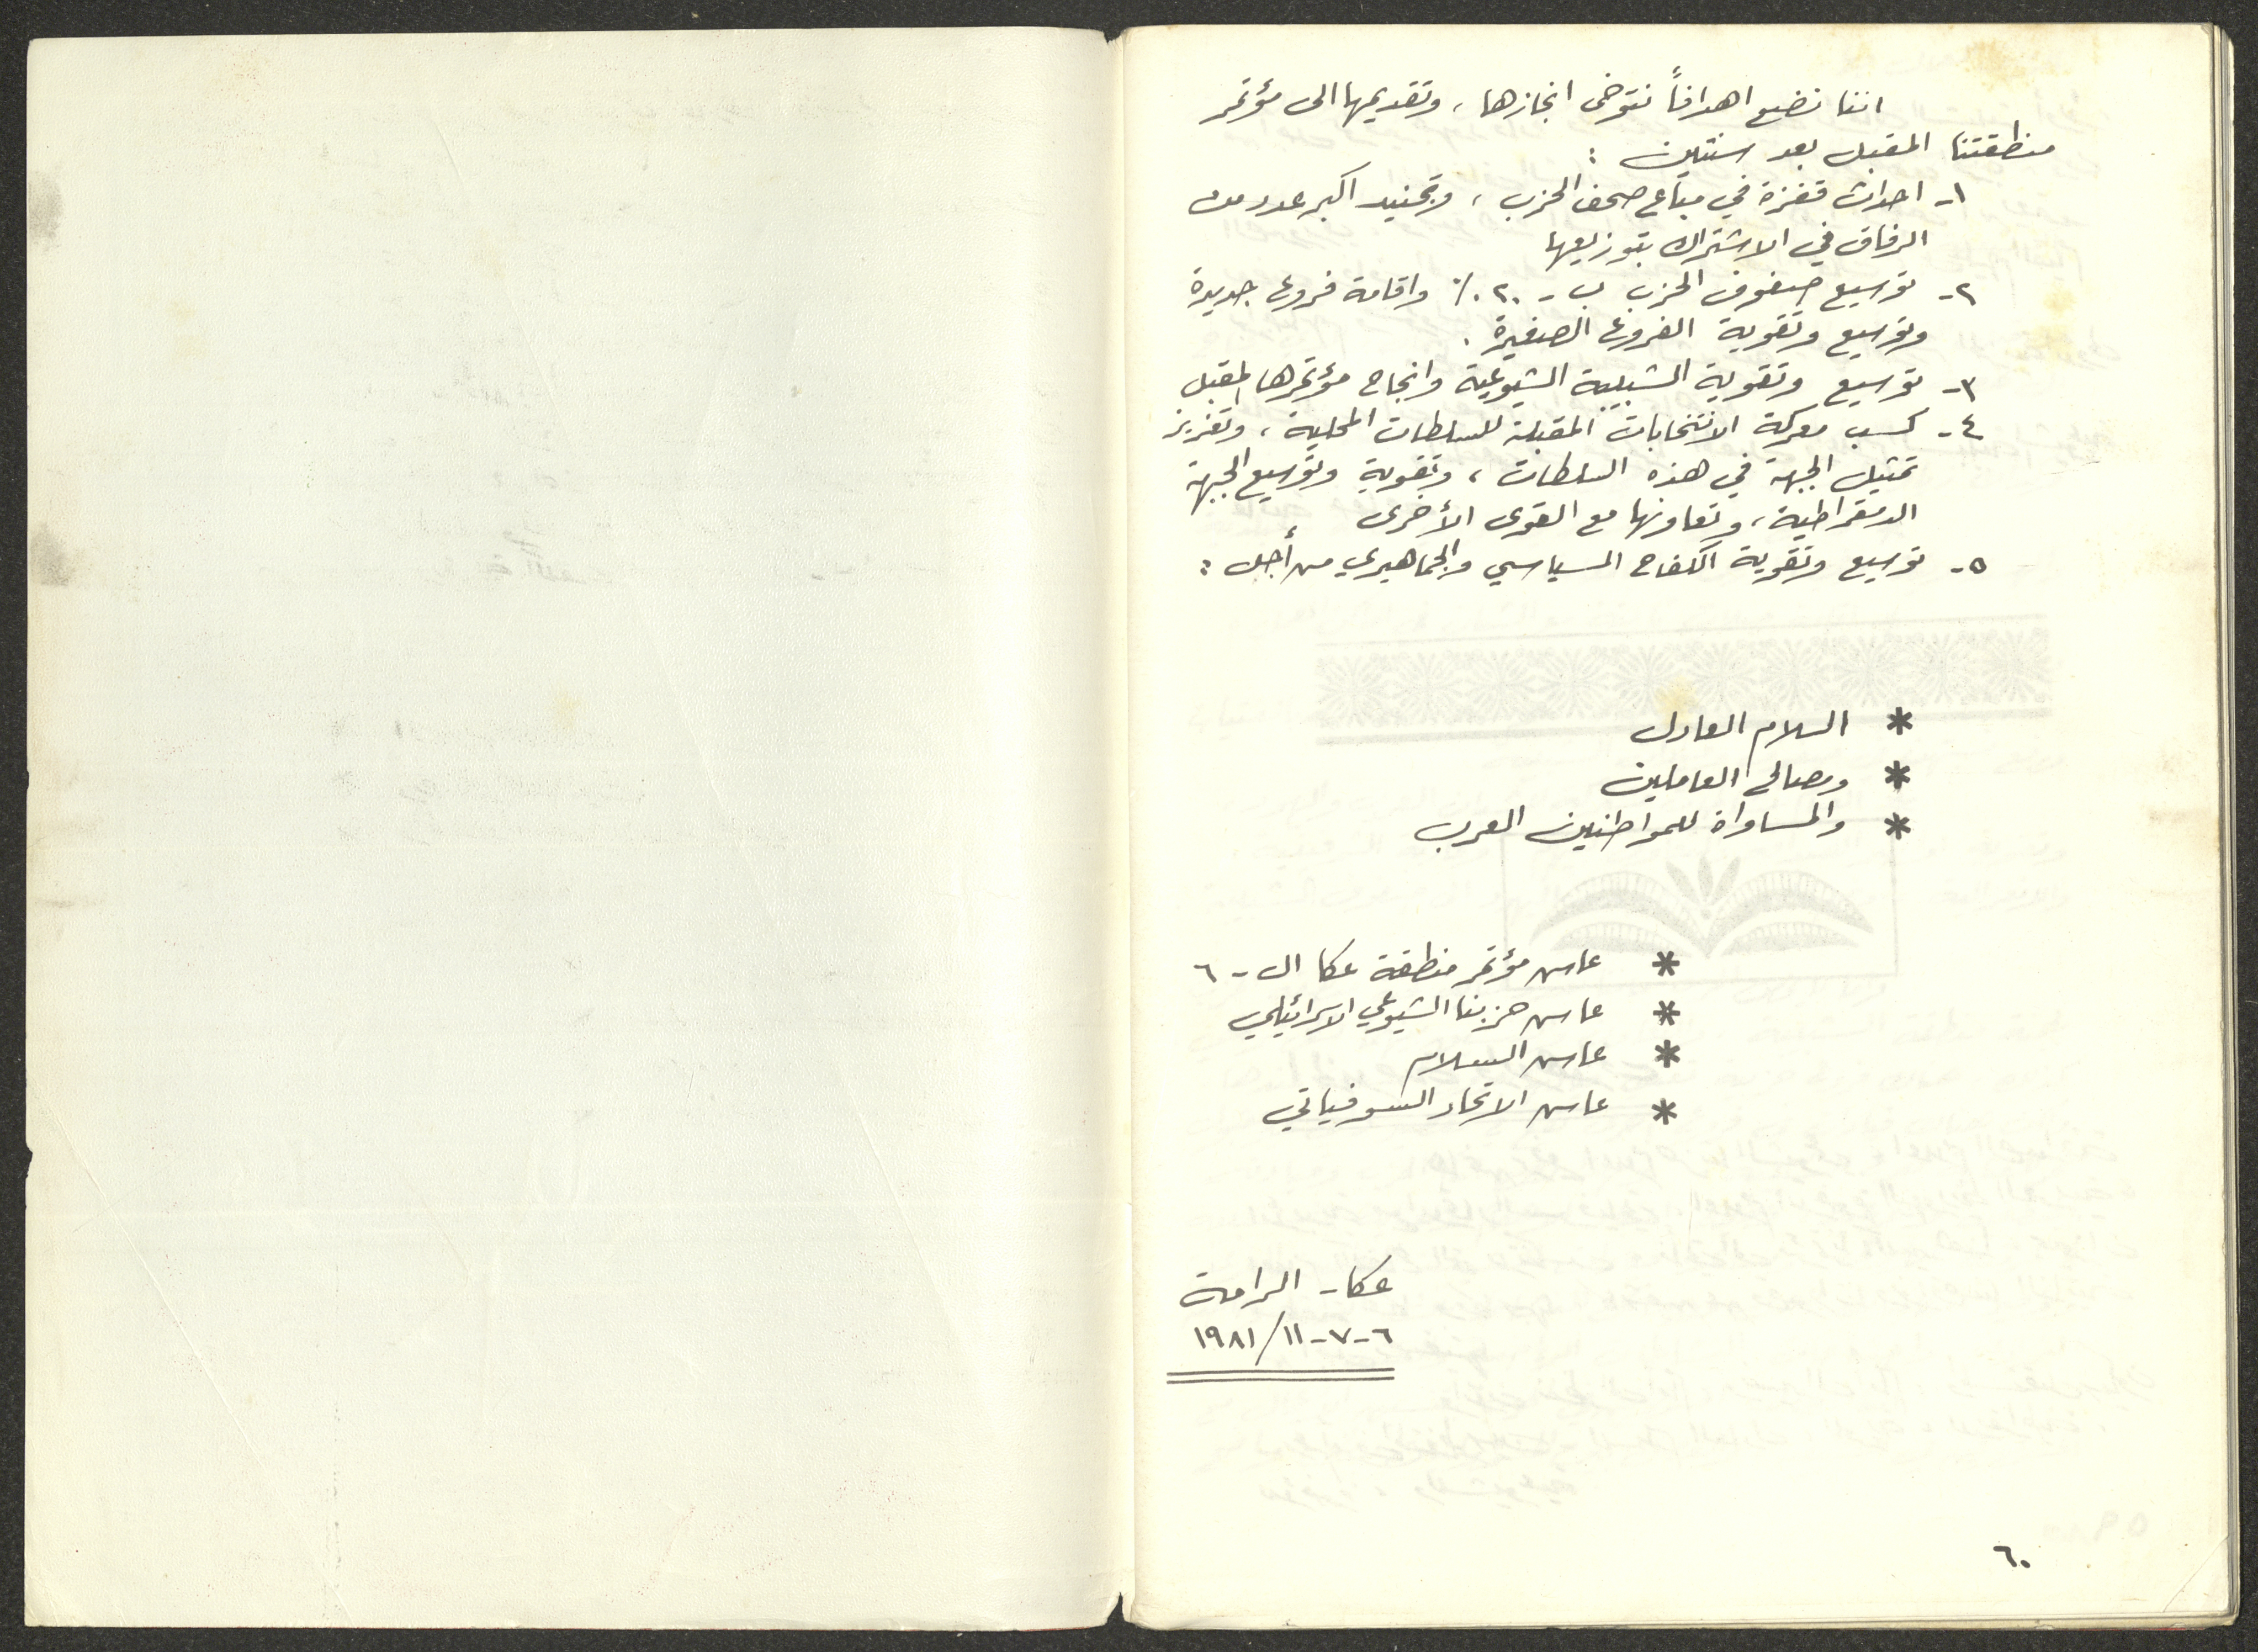 اننا نضع اهدافاً نتوخى انجازها، وتقديمها الى مؤتمر
منطقتنا المقبل بعد سنتين :
١- احداث قفزة في مباع صحف الحزب، وتجنيد اكبر عدد من
الرفاق في الاشتراك بتوزيعها
٢- توسيع صفوف الحزب ب - ٢٠٪ واقامة فروع جديدة
وتوسيع وتقوية الفروع الصغيرة .
٣- توسيع وتقوية الشبيبة الشيوعية وانجاح مؤتمرها المقبل
٤- كسب معركة الانتخابات المقبلة للسلطات المحلية، وتعزيز
تمثيل الجبهة في هذه السلطات، وتقوية وتوسيع الجبهة
الدمقراطية، وتعاونها مع القوى الأخرى
٥- توسيع وتقوية الكفاح السياسي والجماهيري من أجل :
* السلام العادل
* ومصالح العاملين
* والمساواة للمواطنين العرب
* عاش مؤتمر منطقة عكا ال - ٦
* عاش حزبنا الشيوعي الاسرائيلي
* عاش السلام
* عاش الاتحاد السوفياتي
عكا - الرامة
٦-٧-١١/١٩٨١
٦٠